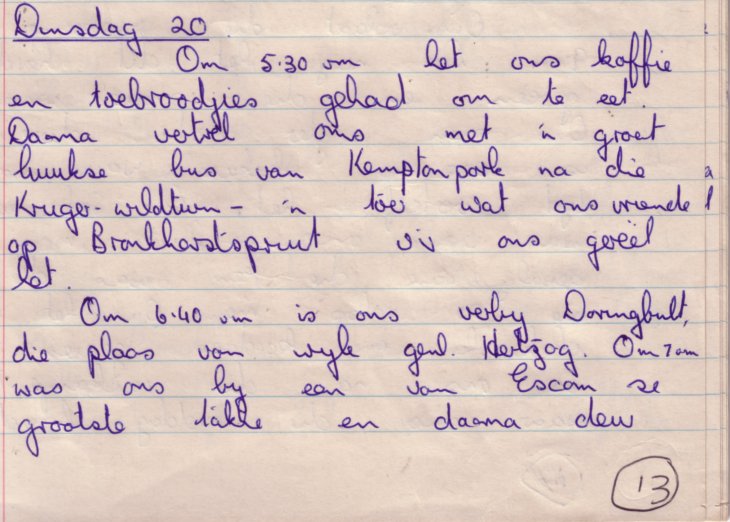 Dinsdag 20.
Om 5.30 vm het ons koffie
en toebroodjies gehad om te eet.
Daarna vertrek ons met 'n groot
luukse bus van Kemptonpark na die
Kruger-wildtuin - 'n toer wat ons vriende
op Bronkhorstspruit vir ons gereël
het.
Om 6.40 vm is ons verby Doringbult,
die plaas van wyle genl. Hertzog. Om 7 am
was ons by een van Escom se
grootste takke en daarna deur
13